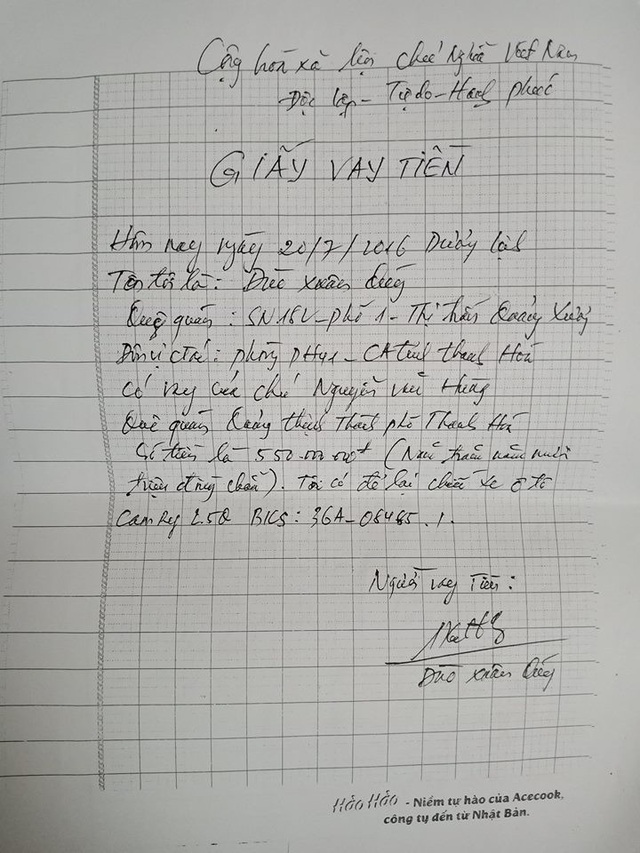 Cộng hòa xã hội chủ Nghĩa Việt Nam
Độc lập - Tự do - Hạnh phúc
GIẤY VAY TIỀN
Hôm nay ngày 20/7/2016 Dương lịch
Tên tôi là: Đào Xuân
Quê quán: SN 18V - phố 1 - Thị trấn Quảng Xương
Đơn vị ctác: phòng PH41 - CA tỉnh Thanh Hoá
Có vay của chú Nguyễn Hùng
Quê quán Quảng Thịnh Thành phố Thanh Hoá
Số tiền là 550.000.000đ (Năm trăm năm mươi
triệu đồng chẵn). Tôi có để lại chiếc xe ô tô
Camry 2.5Q BKS: 36A-08485./.
Người vay Tiền:
Đào Xuân
Hảo Hảo - Niềm tự hào của Acecook,
công ty đến từ Nhật Bản.